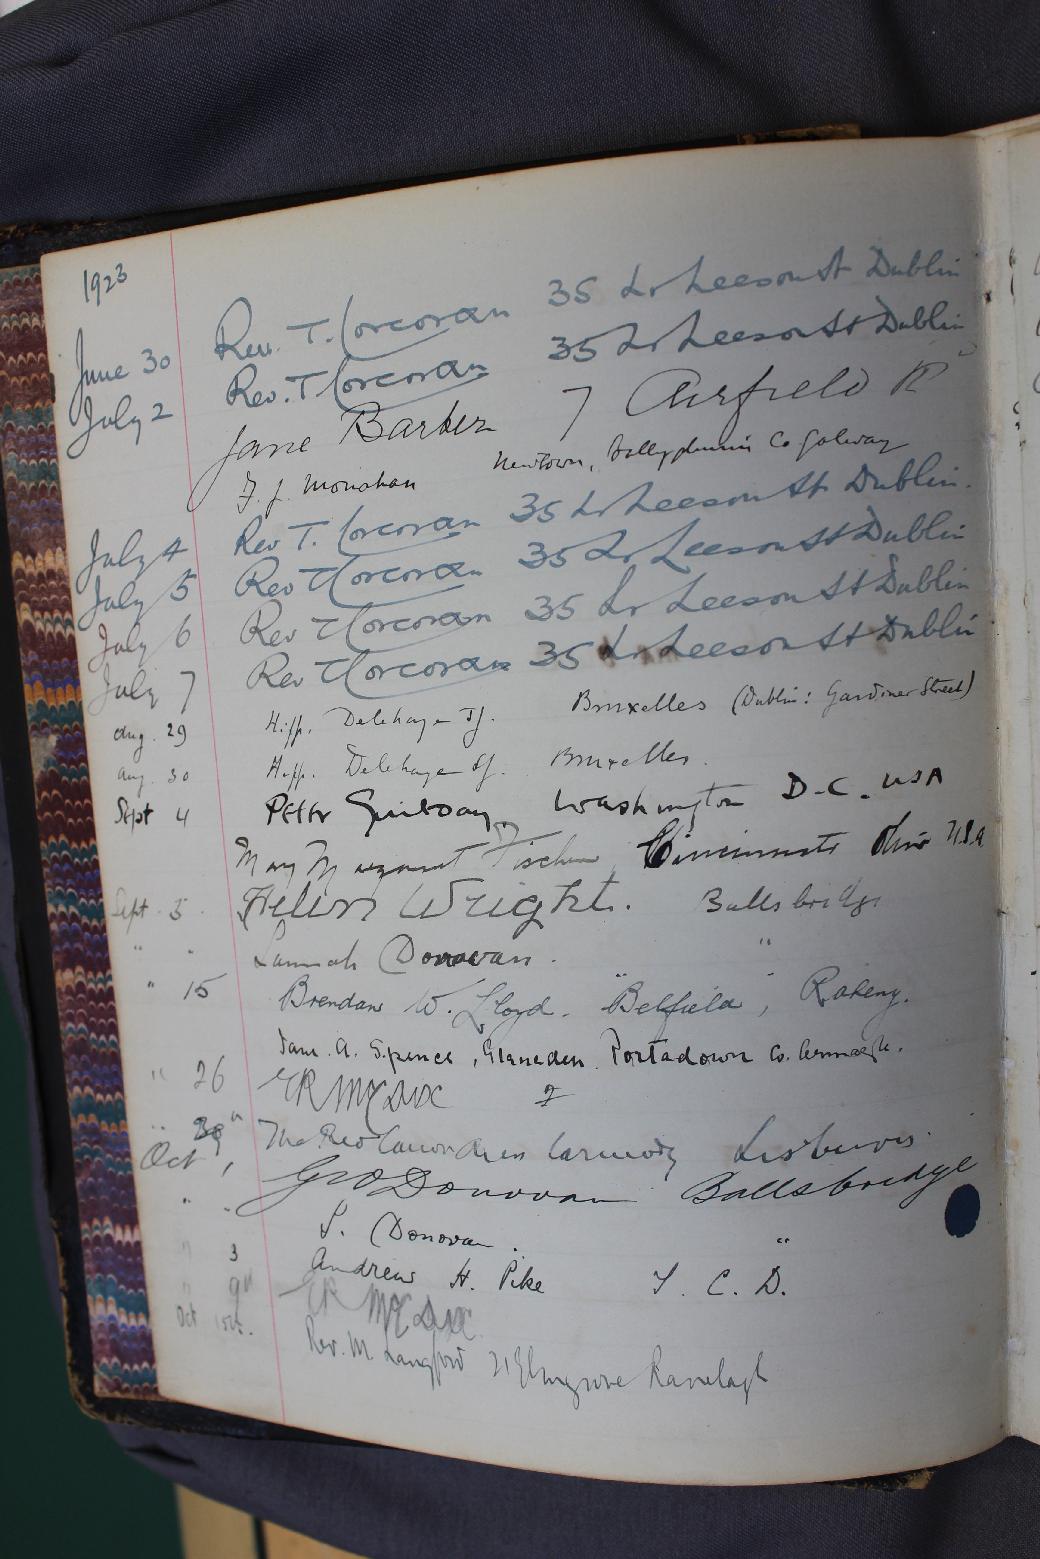 1923
June 30 Rev. T. Corcoran 35 Lr Leeson St Dublin
July 2 Rev. T Corcoran 35 Lr Leeson St Dublin
Jane Barker 7 Airfield Rd
J. Monahan Newtown, Co Galway
July 4 Rev T. Corcoran 35 Lr Leeson St Dublin.
July 5 Rev T Corcoran 35 Lr Leeson St Dublin
July 6 Rev T Corcoran 35 Lr Leeson St Dublin
July 7 Rev T Corcoran 35 Lr Leeson St Dublin
Aug. 29 Hipp. Delehaye SJ. Bruxelles (Dublin: Gardiner Street)
Aug. 30 Hipp. Delehaye SJ. Bruxelles.
Sept 4 Peter Guilday, Washington D.C. USA
Mary Margaret Fischer, Cincinnati Ohio U.S.A
Sept. 5. Helen Wright. Ballsbridge
" " Hannah Donovan. "
" 15 Brendan W. Lloyd. "Belfield", Raheny.
A. Spence, Portadown Co. Armagh.
" 26 ER McC Dix
" The Rev Canon Carmody Lisburn.
Oct 1 Geo Donovan Ballsbridge
" " S. Donovan. "
" 3 Andrew H. Pike T. C. D.
" 9 ER McC Dix
Oct Rev. M. Langford 21 Elmgrove Ranelagh